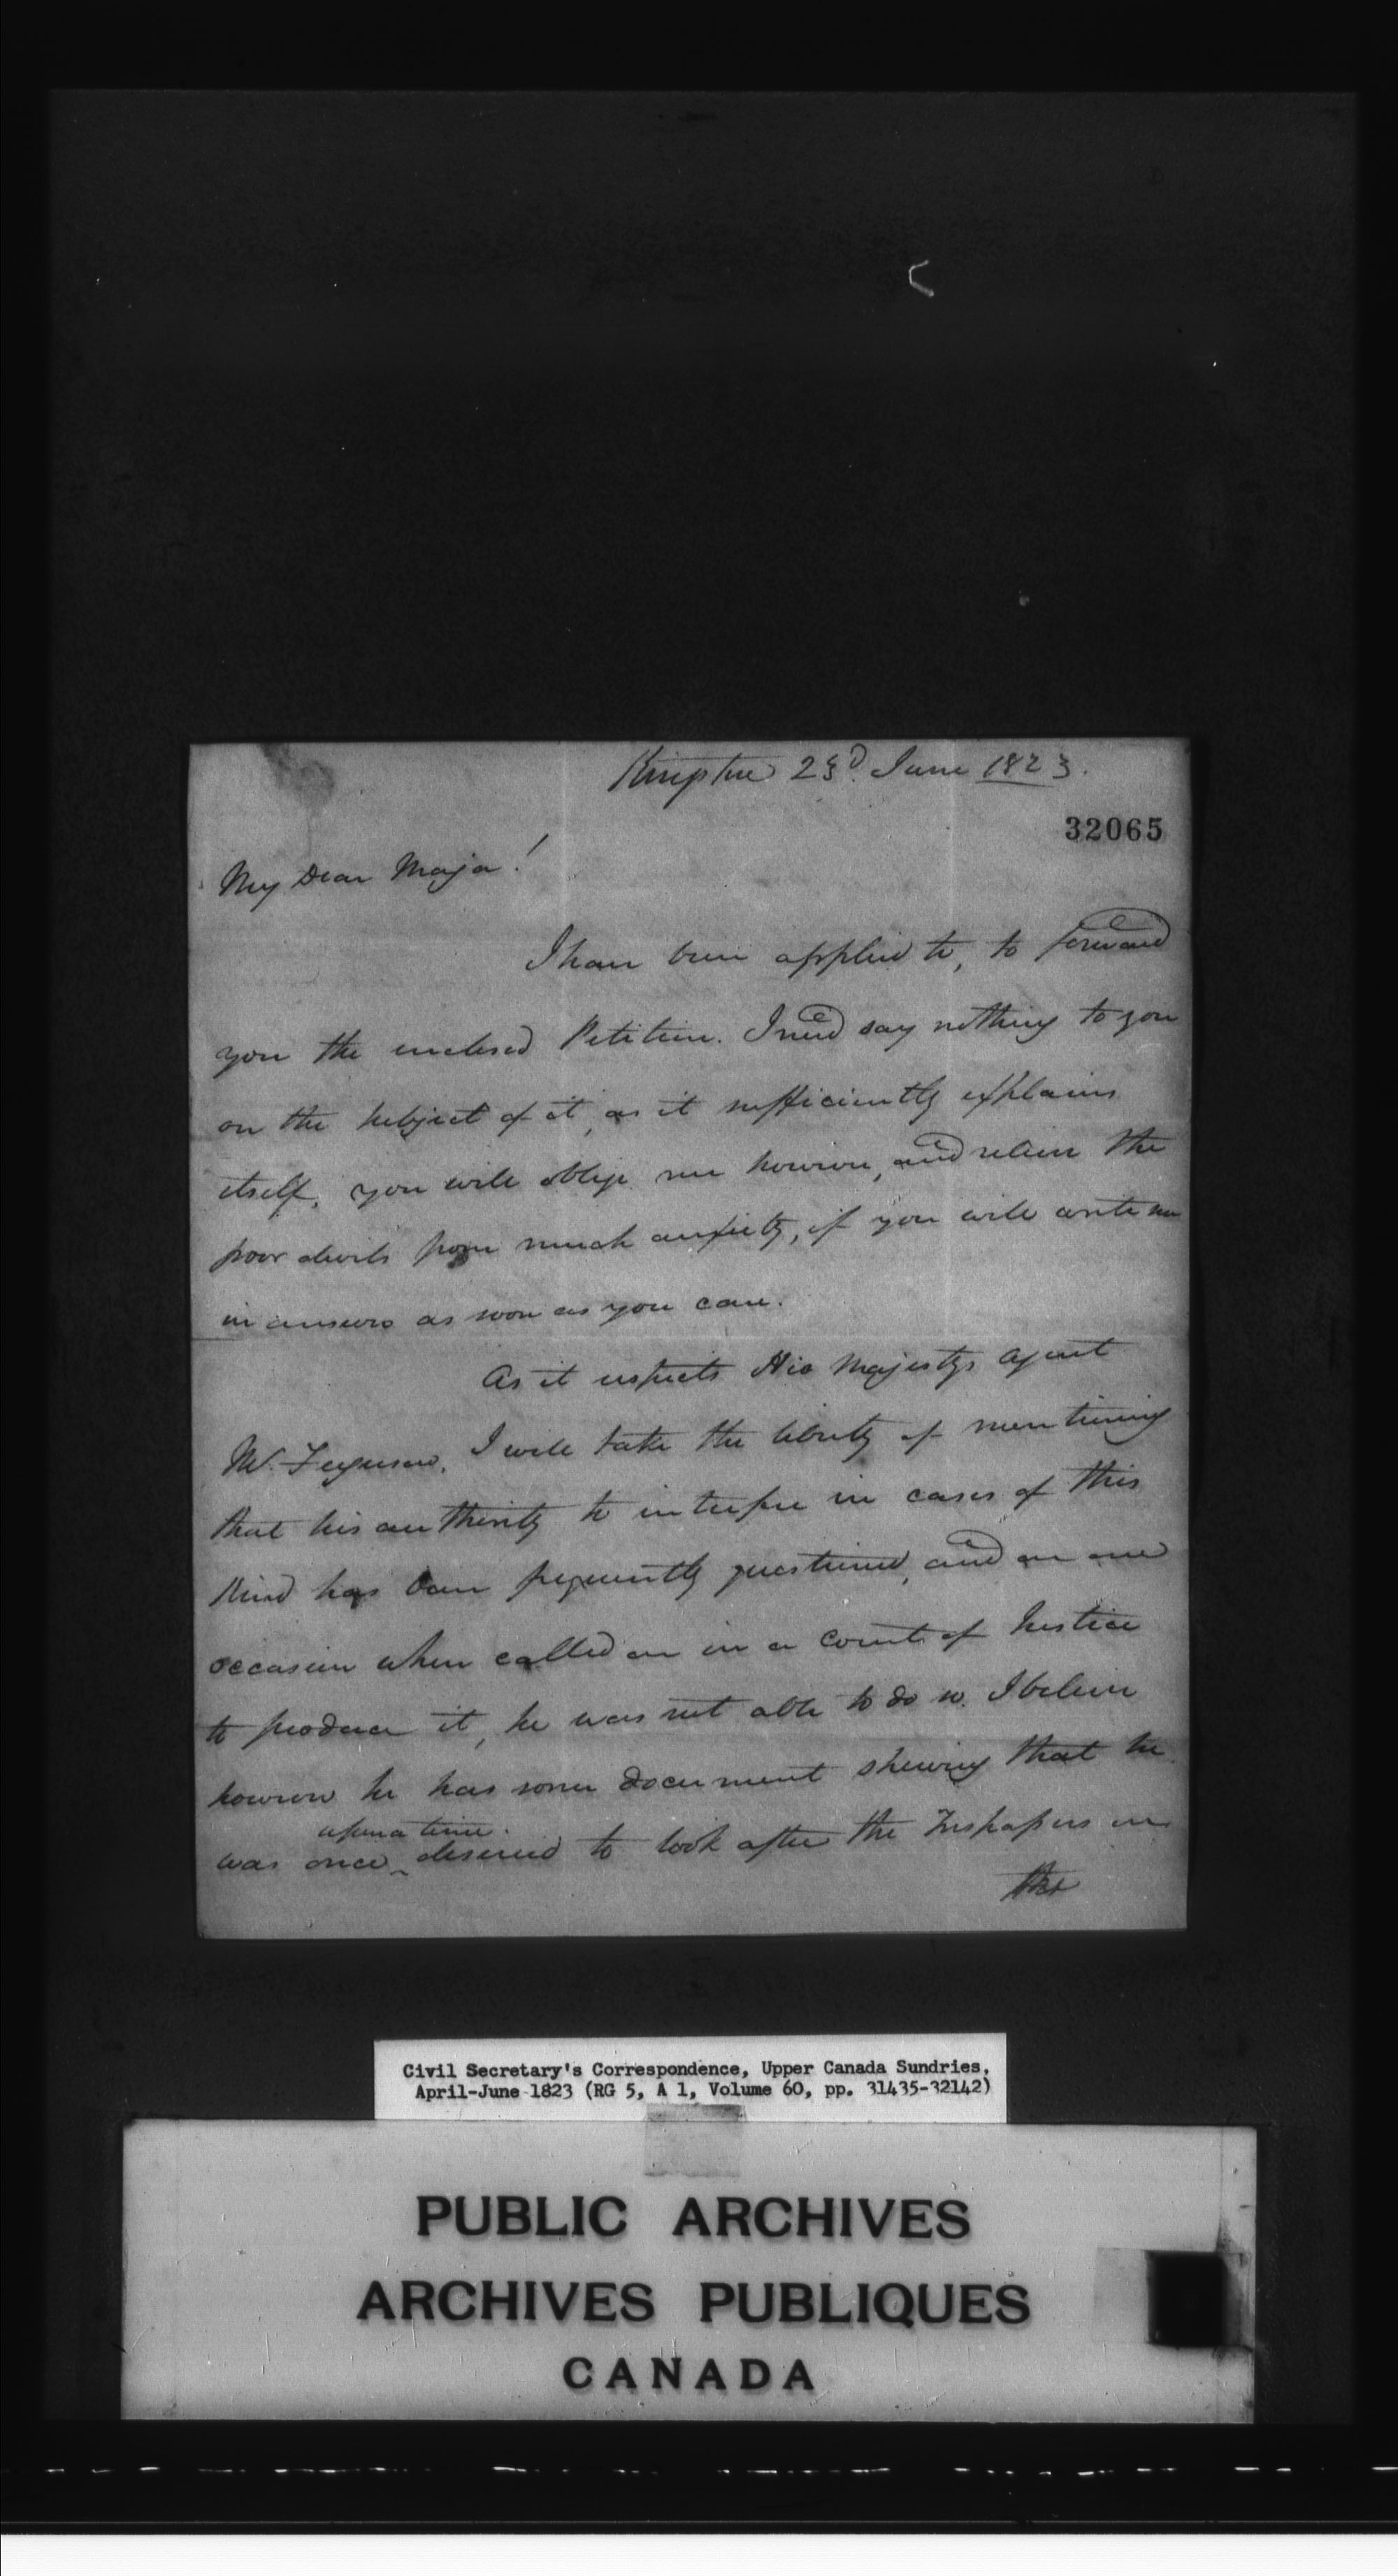 Kingston 23d. June 1823.
32065
My Dear Major!
I have been applied to, to forward
you the enclosed Petition. I need say nothing to you
on the subject of it, as it sufficiently explains
itself. you will oblige me however, and relieve the
poor devils from much anxiety, if you will write me
in answer as soon as you can.
As it respects His Majestys Agent
Mr. Ferguson, I will take the liberty of mentioning
that his authority to interfere in cases of this
kind has been frequently questioned, and on one
occasion when called on in a Court of Justice
to produce it, he was not able to do so. I believe
however he has some document shewing that he
upon a time.
was once desired to look after the Trespassers on
the
Civil Secretary's Correspondence, Upper Canada Sundries,
April-June 1823 (RG 5, A 1, Volume 60, pp. 31435-32142)
PUBLIC ARCHIVES
ARCHIVES PUBLIQUES
CANADA